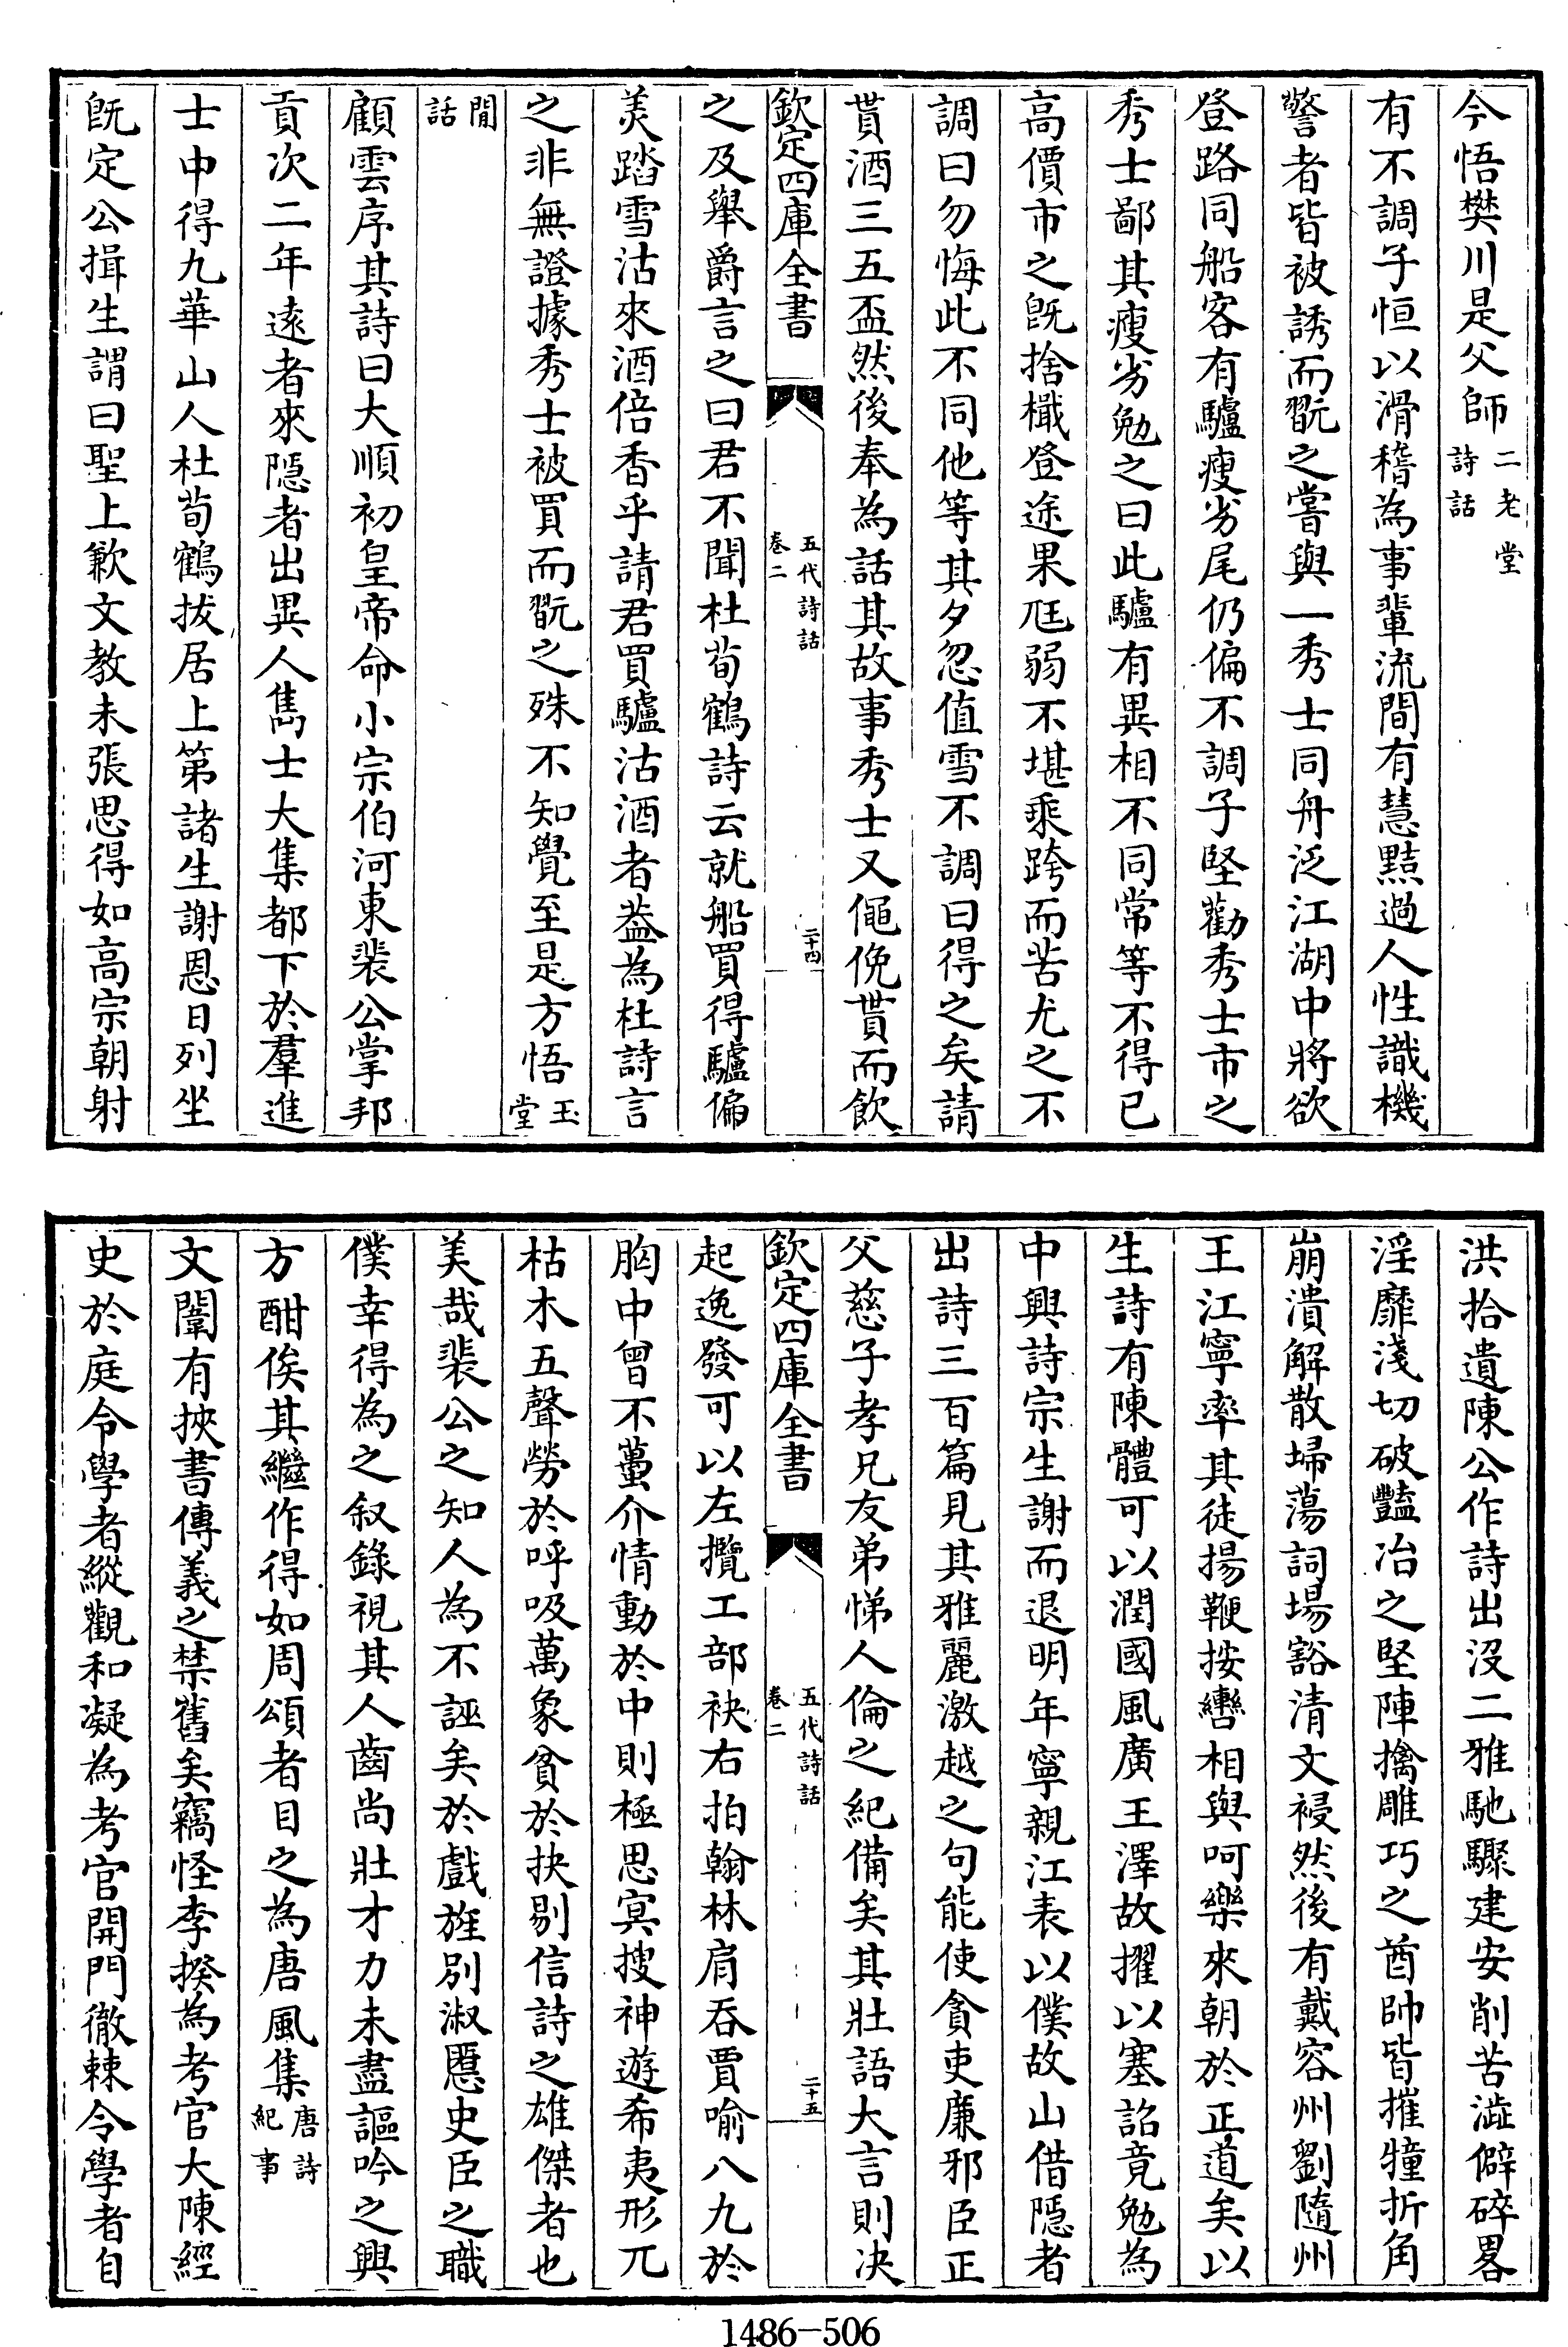 今悟樊川是父師二老堂詩話
有不調子恒以滑稽為事輩流間有慧黠過人性識機
警者皆被誘而翫之嘗與一秀士同舟泛江湖中將欲
登路同船客有驢瘦劣尾仍偏不調子堅勸秀士市之
秀士鄙其瘦劣勉之曰此驢有異相不同常等不得已
高價市之旣捨檝登途果尫弱不堪乘跨而苦尤之不
調曰勿悔此不同他等其夕忽值雪不調曰得之矣請
貰酒三五盃然後奉為話其故事秀士又僶俛貰而飲
欽定四庫全書
五代詩話
卷二
二十四
之及舉爵言之曰君不聞杜荀鶴詩云就船買得驢偏
美踏雪沽來酒倍香乎請君買驢沽酒者葢為杜詩言
之非無證據秀士被買而翫之殊不知覺至是方悟玉堂
閒話
顧雲序其詩曰大順初皇帝命小宗伯河東裴公掌邦
貢次二年遠者來隱者出異人雋士大集都下於羣進
士中得九華山人杜荀鶴拔居上第諸生謝恩日列坐
旣定公揖生謂曰聖上歉文教未張思得如高宗朝射
洪拾遺陳公作詩出沒二雅馳驟建安削苦澁僻碎畧
淫靡淺切破豔冶之堅陣擒雕巧之酋帥皆摧犝折角
崩潰解散埽蕩詞場豁清文祲然後有戴容州劉隨州
王江寧率其徒揚鞭按轡相與呵樂來朝於正道矣以
生詩有陳體可以潤國風廣王澤故擢以塞詔竟勉為
中興詩宗生謝而退明年寧親江表以僕故山借隱者
出詩三百篇見其雅麗激越之句能使貪吏廉邪臣正
父慈子孝兄友弟悌人倫之紀備矣其壯語大言則決
欽定四庫全書
五代詩話
卷二
二十五
起逸發可以左攬工部袂右拍翰林肩吞賈喻八九於
胸中曾不蠆介情動於中則極思冥搜神遊希夷形兀
枯木五聲勞於呼吸萬象貧於抉剔信詩之雄傑者也
美哉裴公之知人為不誣矣於戲旌別淑慝史臣之職
僕幸得為之叙錄視其人齒尚壯才力未盡謳吟之興
方酣俟其繼作得如周頌者目之為唐風集唐詩紀事
文闈有挾書傳義之禁舊矣竊怪李揆為考官大陳經
史於庭令學者縱觀和凝為考官開門徹棘令學者自
1486-506